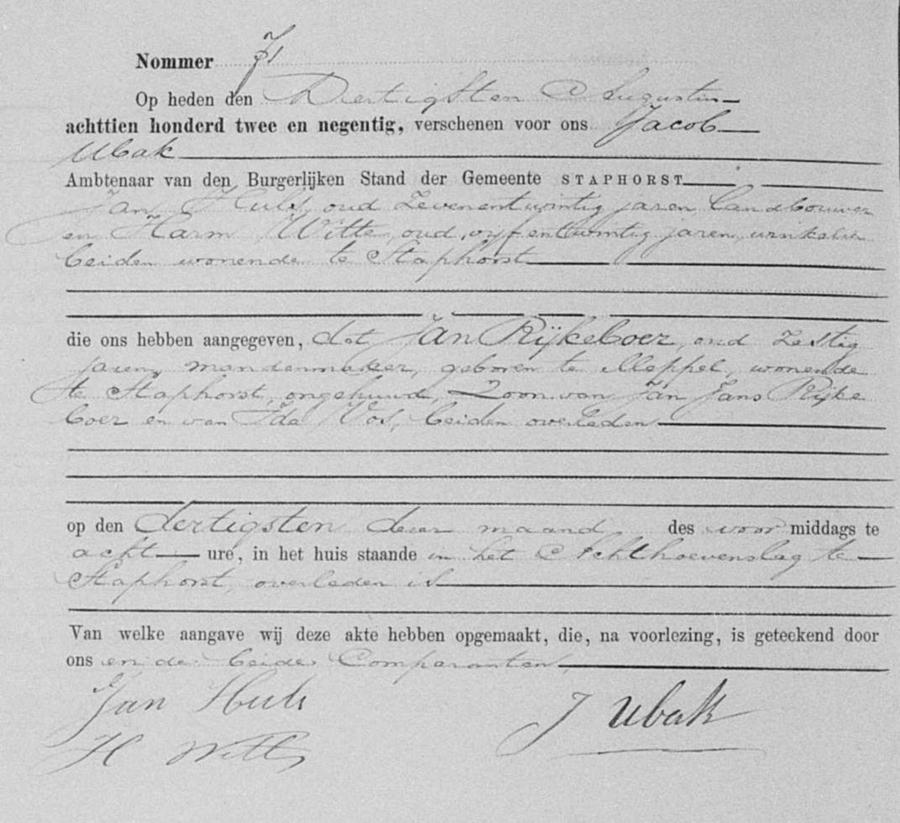 Nommer 71
Op heden den Dertigsten Augustus
achttien honderd twee en negentig, verschenen voor ons Jacob
Ubak
Ambtenaar van den Burgerlijken Stand der Gemeente STAPHORST
Jan Huls, oud Zevenentwintig jaren, Landbouwer
en Harm Witte, oud vijfentwintig jaren, winkelier
beiden wonende te Staphorst
die ons hebben aangegeven, dat Jan Rijkeboer, oud Zestig
jaren, mandenmaker, geboren te Meppel, wonende
te Staphorst, ongehuwd, Zoon van Jan Jans Rijke
boer en van Ida Vos, beiden overleden
op den dertigsten dezer maand des voor middags te
acht ure, in het huis staande in het Achthoevenslag te
Staphorst, overleden is
Van welke aangave wij deze akte hebben opgemaakt, die, na voorlezing, is geteekend door
ons en de beide Comparanten
Jan Huls
J Ubak
H Witte